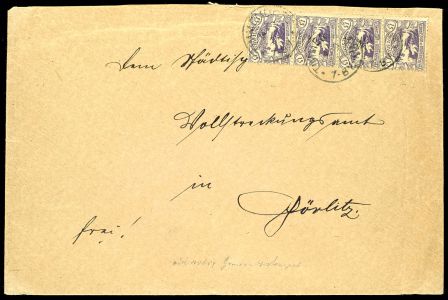 Dem Städtisch
Vollstreckungsamt
in
Görlitz.
frei!